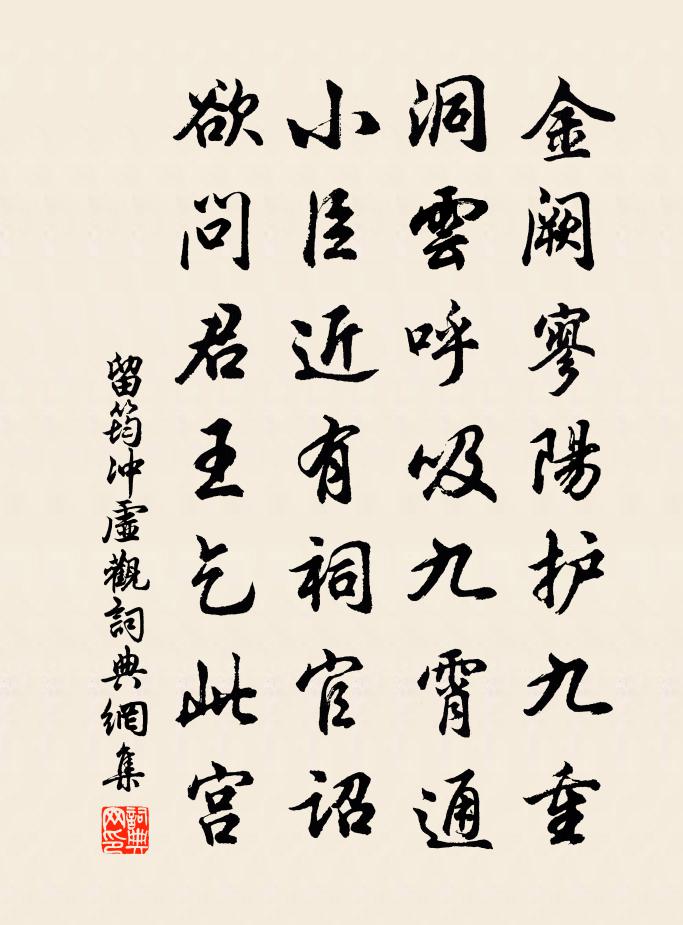 金阙寥陽护九重
洞雲呼吸九霄通
小臣近有祠官詔
欲問君王乞此宫
留筠冲虛觀詞典網集
詞典
网印